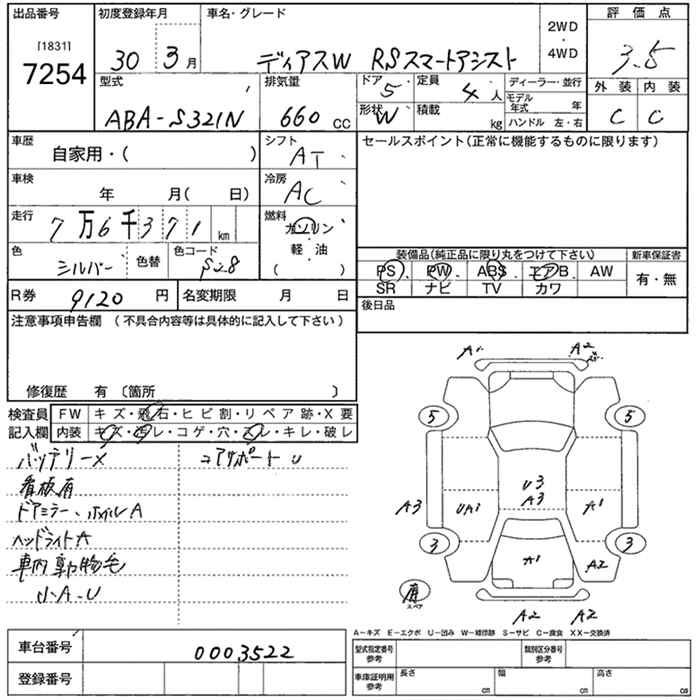 出品番号 初度登録年月 車名・グレード 2WD 評価点
[1831]
7254 30 3月 ディアスW RSスマートアシスト 4WD 3.5
型式 排気量 ドア 5 定員 4人 ディーラー・並行 外装 内装
ABA-S321N 660cc 形状 W 積載 kg モデル年式 年 C C
ハンドル 左・右
車歴 自家用・( ) シフト AT セールスポイント(正常に機能するものに限ります)
車検 年 月( 日) 冷房 AC
走行 7万6千371km 燃料 ガソリン
軽・油
( )
色 シルバー 色替 色コード S28 装備品(純正品に限り丸をつけて下さい) 新車保証書
PS PW ABS エアB AW 有・無
SR ナビ TV カワ
R券 9120円 名変期限 月 日 後日品
注意事項申告欄 (不具合内容等は具体的に記入して下さい)
修復歴 有 〔箇所 〕
検査員 FW キズ・飛石・ヒビ割・リペア跡・X要
記入欄 内装 キズ・汚レ・コゲ・穴・スレ・キレ・破レ
バッテリーX コアサポートU
看板有
ドアミラー、ホイルA
ヘッドライトA
車内動物毛
小A-U
A1 A2
5 5
U3
A3 A3
UA1 A1
3 3
A1 A2
有
スペア
A2 A2
A-キズ E-エクボ U-凹み W-補修跡 S-サビ C-腐食 XX-交換済
車台番号 0003522 型式指定番号 参考 類別区分番号 参考
登録番号 車庫証明用 参考 長さ cm 幅 cm 高さ cm